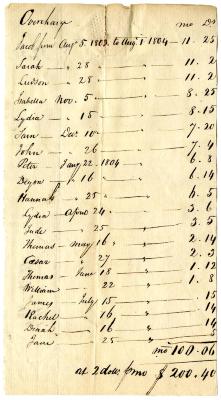 Overcharge mo Ds
Jacob from Aug 5. 1803. to Aug 1 1804 — 11 . 25
Sarah — 28 — 11 . 2
— 28 — 11 . 2
Isabella Nov. 5 — 8 . 25
Lydia — 15 — 8 . 15
Sam — Dec. 10 — 7 . 20
John — 26 — 7 . 4
Peter Jany 22. 1804 — 6 . 8
— 16 — 6 . 14
Hannah — 25 — 4 . 5
Lydia — April 24 — 3 . 6
Jude — 25 — 3 . 5
Thomas — may 16 — 2 . 14
Cæsar — 27 — 2 . 3
Thomas — June 18 — 1 . 12
William — 22 — 1 . 8
James July 15 — 15
Rachel — 16 — 14
Dinah — 16 — 14
Jane — 25
mo 100.06
at 2 dolls pr mo $ 200.40